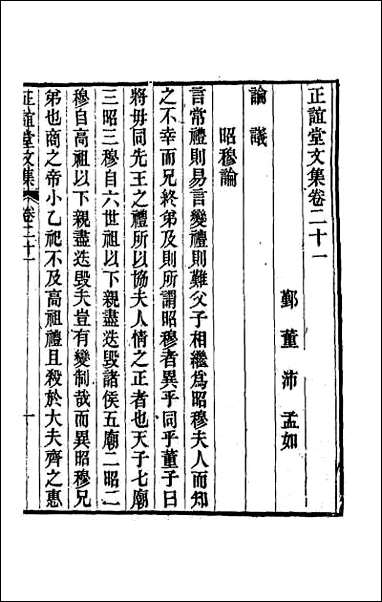 正誼堂文集卷二十一
鄞董沛孟如
論議
昭穆論
言常禮則易言變禮則難父子相繼為昭穆夫人而知
之不幸而兄終弟及則所謂昭穆者異乎同乎董子曰
將毋同先王之禮所以協夫人情之正者也天子七廟
三昭三穆自六世祖以下親盡迭毀諸侯五廟二昭二
穆自高祖以下親盡迭毀夫豈有變制哉而異昭穆兄
弟也商之帝小乙祀不及高祖禮且殺於大夫齊之惠
正誼堂文集
卷二十一
一